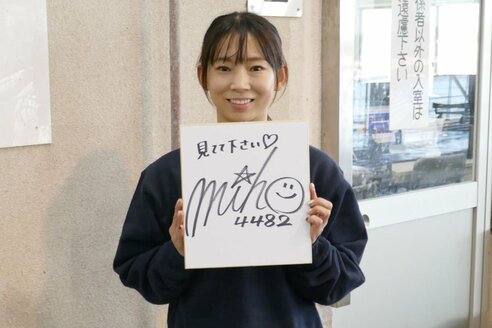 見て下さい♡
miho
4482
係者以外の入室は
遠慮下さい